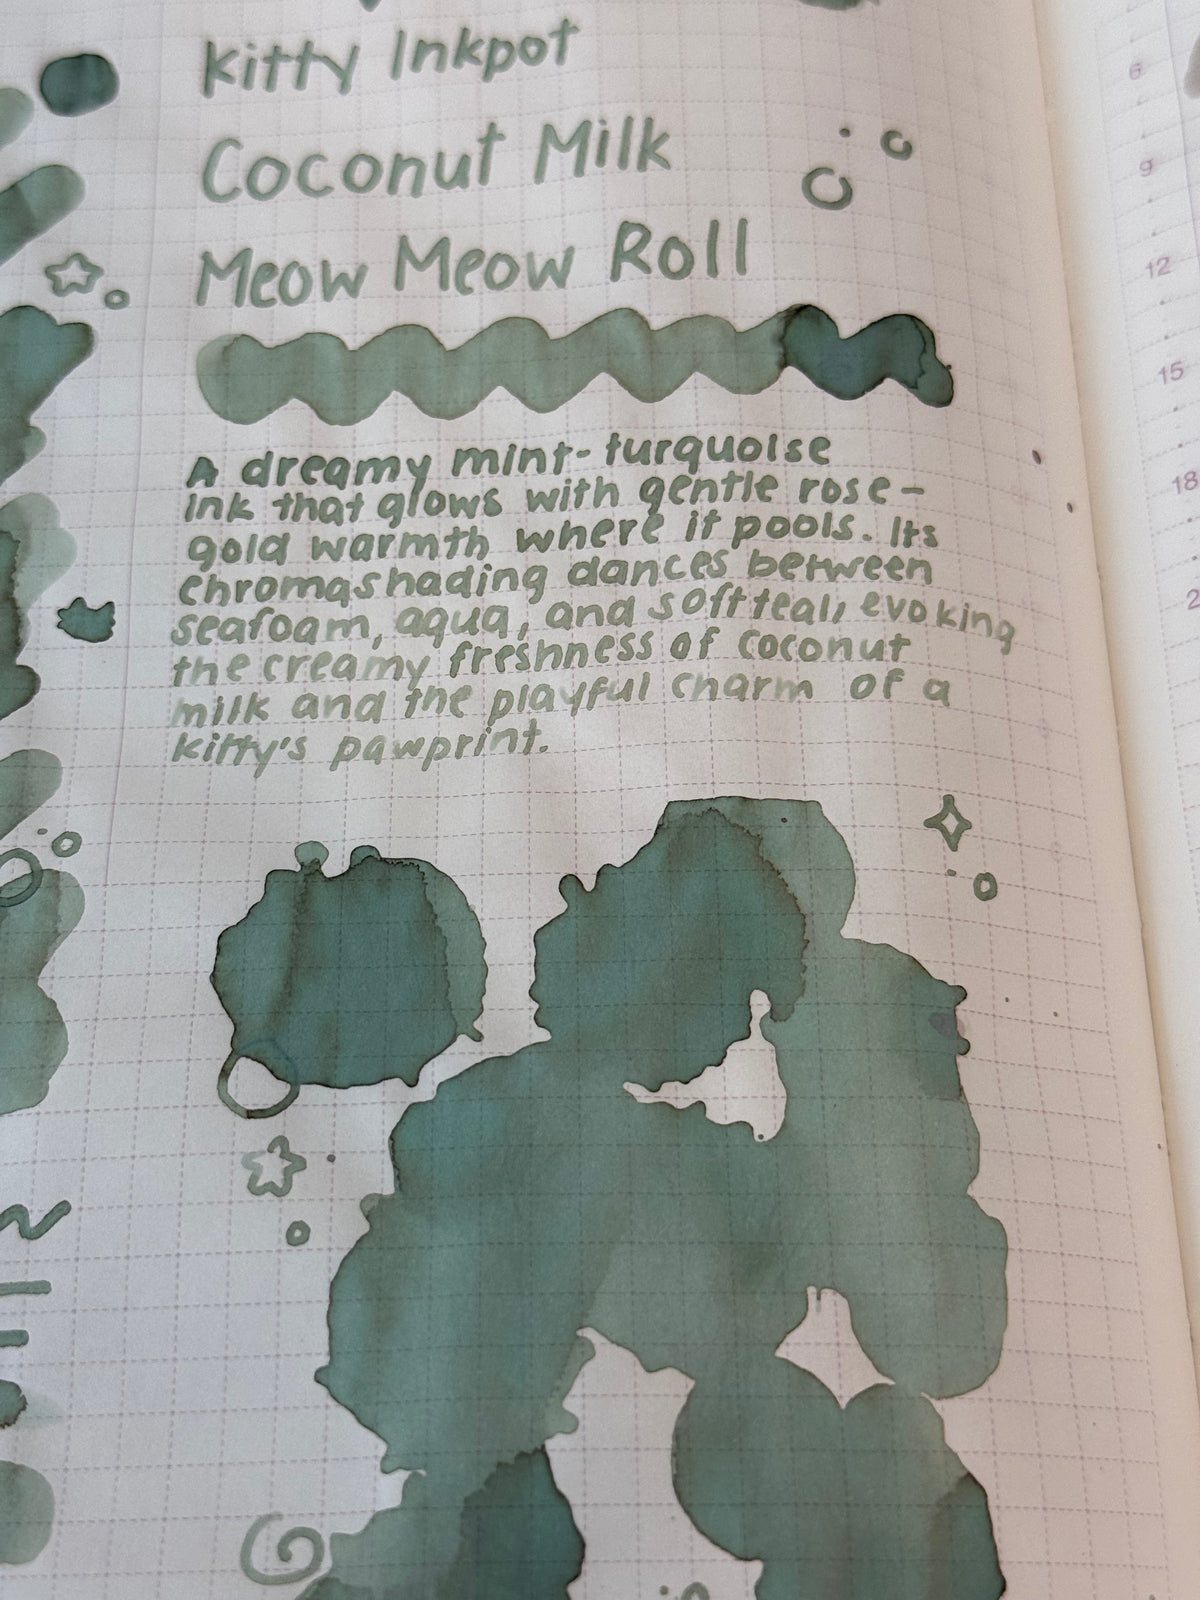 Kitty Inkpot
Coconut Milk
Meow Meow Roll
A dreamy mint-turquoise
ink that glows with gentle rose-
gold warmth where it pools. Its
chromashading dances between
seafoam, aqua, and soft teal, evoking
the creamy freshness of coconut
milk and the playful charm of a
kitty's pawprint.
6
9
12
15
18
2